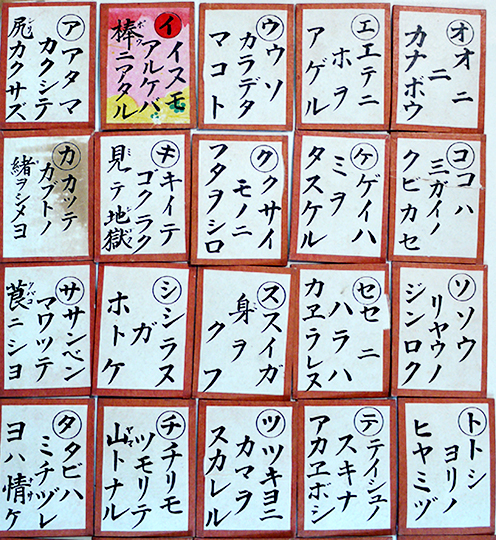 ア
アタマ
カクシテ
尻カクサズ
イ
イヌモ
アルケバ
棒ニアタル
ウ
ウソ
カラデタ
マコト
エ
エテニ
ホヲ
アゲル
オ
オニ
ニ
カナボウ
カ
カッテ
カブトノ
緒ヲシメヨ
キ
キイテ
ゴクラク
見テ地獄
ク
クサイ
モノニ
フタヲシロ
ケ
ゲイハ
ミヲ
タスケル
コ
コハ
三ガイノ
クビカセ
サ
サンベン
マワツテ
莨ニシヨ
シ
シラヌ
ガ
ホトケ
ス
スイガ
身ヲ
クフ
セ
セニ
ハラハ
カヱラレヌ
ソ
ソウ
リヤウノ
ジンロク
タ
タビハ
ミチヅレ
ヨハ情ケ
チ
チリモ
ツモリテ
山トナル
ツ
ツキヨニ
カマヲ
スカレル
テ
テイシュノ
スキナ
アカヱボシ
ト
トシ
ヨリノ
ヒヤミヅ